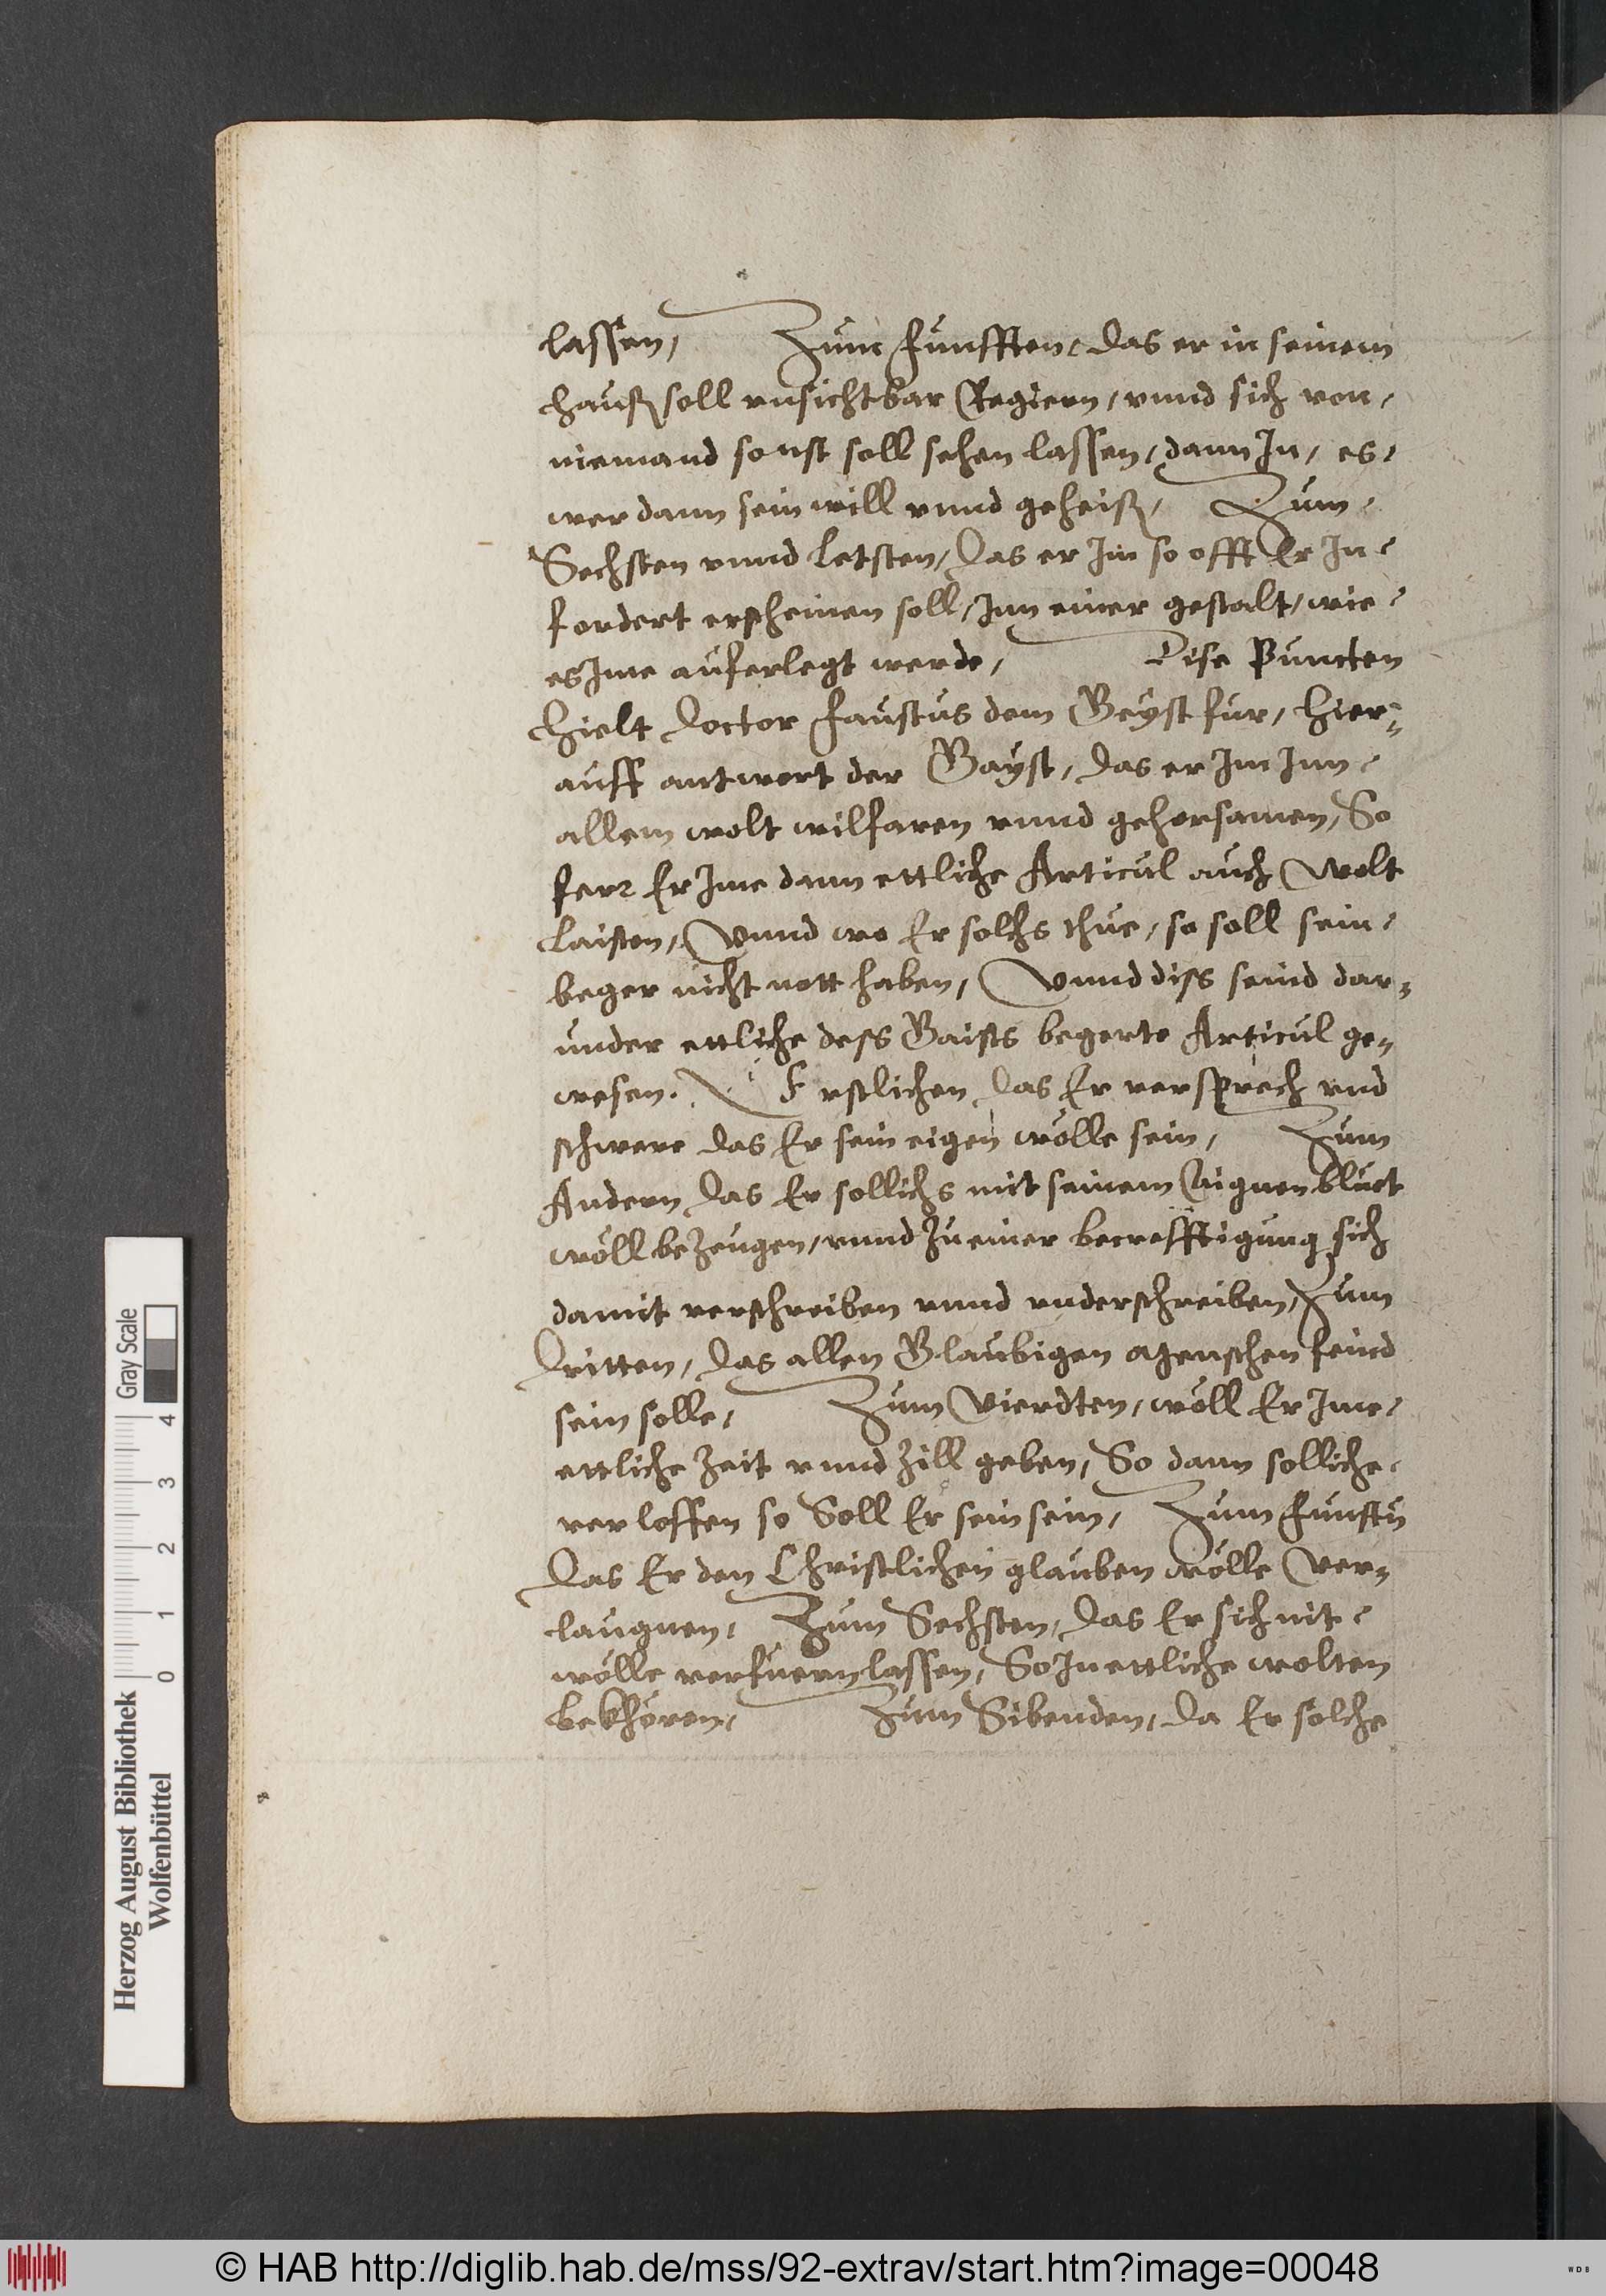 lassen, Zum funfften, das er in seinem
hauß soll vnsichtbar Regiern, vnnd sich von,
niemand sonst soll sehen lassen, dann In, es,
wer dann sein will vnnd geheiß, Zum,
Sechsten vnnd letsten, das er Im so offt Er In,
fordert erscheinen soll, Inn einer gestalt, wie,
es Ime auferlegt werde, Dise Puncten
hielt doctor faustus dem Geyst fur, hier„
auff antwort der Gayst, das er Im Inn,
allem wolt wilfaren vnnd gehorsamen, So
ferr Er Ime dann ettliche Articul auch wolt
laisten, Vnnd wo Er solchs thue, so soll sein,
beger nicht nott haben, Vnnd diss seind dar„
under ettliche dess Gaists begerte Articul ge„
wesen. Erstlichen das Er versprech vnd
schwere das Er sein eigen wölle sein, Zum
Andern das Er sollichs mit seinem Aignen bluet
wöll bezeugen, vnnd zu einer becrefftigung sich
damit verschreiben vnnd vnderschreiben, Zum
dritten, das allen Glaubigen Menschen feind
sein solle, Zum Vierdten, wöll Er Ime,
ettliche Zeit vnnd Zill geben, So dann solliche,
verloffen so Soll Er sein sein, Zum funftn
das Er den Christlichen glauben wölle Ver„
laugnen, Zum Sechsten, das Er sich nit,
wölle verfuern lassen, So In ettliche wolten
bekhören, Zum Sibenden, da Er solche
Herzog August Bibliothek
Wolfenbüttel
Gray Scale
0 1 2 3 4
© HAB http://diglib.hab.de/mss/92-extrav/start.htm?image=00048
WDB